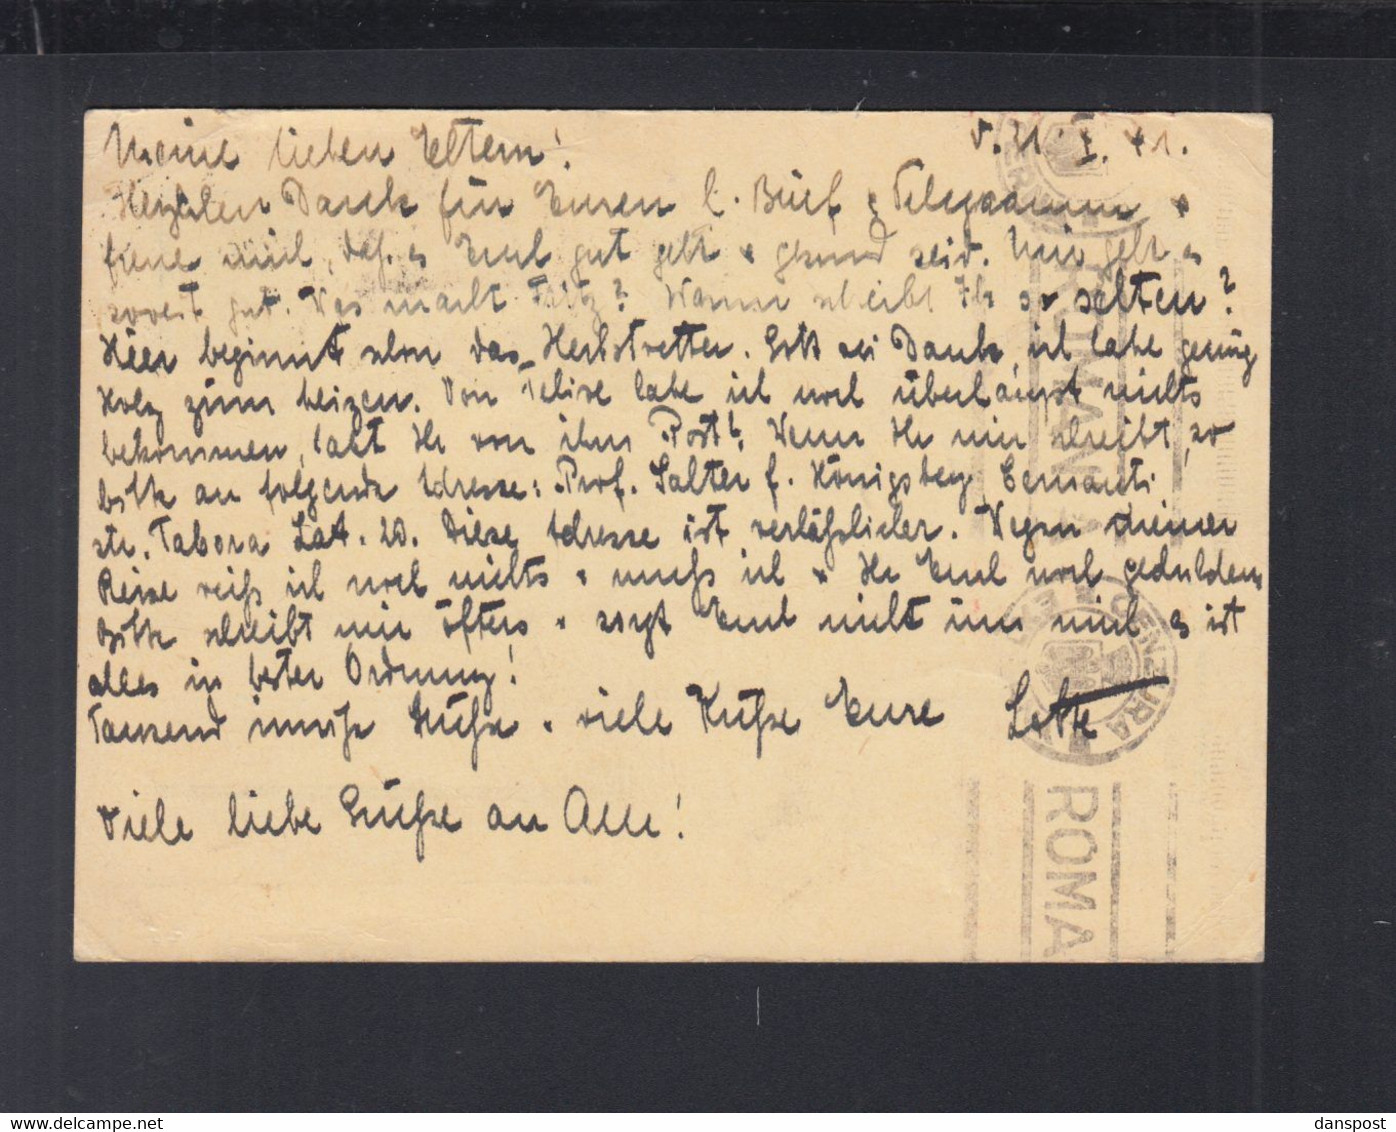 Meine lieben Eltern! d. 21. X. 41.
Herzlichen Dank für Euren l. Brief & Telegramm &
freue mich, daß es Euch gut geht & gesund seid. Mir geht es
soweit gut. Was macht Fritz? Warum schreibt Ihr so selten?
Hier beginnt schon das Herbstwetter. Gott sei Dank, ich habe genug
Holz zum heizen. Von habe ich noch überhaupt nichts
bekommen, habt Ihr von ihm Post? Wenn Ihr mir schreibt, so
bitte an folgende Adresse: Prof. Salter f. Königsberg, Cernauti
str. Tabora Lat. 20. Diese Adresse ist verläßlicher. Wegen meiner
Reise weiß ich noch nichts & muß ich & Ihr Euch noch gedulden.
Bitte schreibt mir öfters & sorgt Euch nicht um mich es ist
alles in bester Ordnung!
Tausend innige Grüße & viele Küße Eure Lotte
Viele liebe Grüße an Alle!
ROMANA
CENZURA
ROMA
danspost